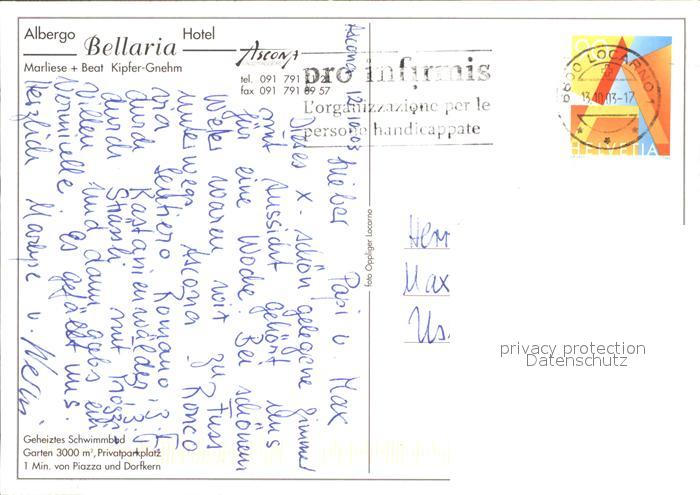 Albergo Bellaria Hotel
Marliese + Beat Kipfer-Gnehm
ASCONA
tel. 091 791
fax 091 791 57
pro infirmis
L'organizzazione per le
persone handicappate
6600 LOCARNO 1
13.10.03-17
90
A
HELVETIA
Ascona, 12.10.03
Lieber Papi u. Max
Dieses x-schön gelegene Zimmer
mit Aussicht gehört uns
für eine Woche. Bei schönem
Wetter waren wir zu Fuss
unterwegs Ascona Ronco
via Sentiero Romano
durch Kastanienwälder
durch Strässli mit
Villen und dann gabs ein
Vermicelle. Es gefällt uns.
Herzlich Marlyse u. Werni
foto Oppliger Locarno
Herr
Max
privacy protection
Datenschutz
Geheiztes Schwimmbad
Garten 3000 m², Privatparkplatz
1 Min. von Piazza und Dorfkern